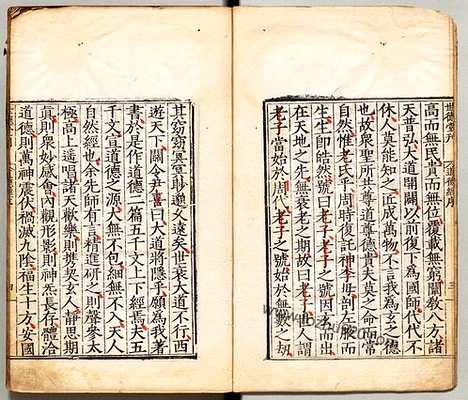 世德堂刊
道德經序
三
高而無民貴而無位覆載無窮闡教八方諸
天普弘大道開闢以前復下為國師代代不
休人莫能知之匠成萬物不言我為玄之德
也故眾聖所共尊道尊德貴夫莫之命而常
自然惟老氏乎周時復託神李母剖左腋而
生生即皓然號曰老子老子之號因玄而出
在天地之先無衰老之期故曰老子世人謂
老子當始於周代老子之號始於無數之劫
其窈窈冥冥眇邈久遠矣世衰大道不行西
遊天下關令尹喜曰大道將隱乎願為我著
書於是作道德二篇五千文上下經焉夫五
千文宣道德之源大無不包細無不入天人
自然經也余先師有言精進研之則聲參太
極高上遙唱諸天歡樂則攜契玄人靜思期
真則眾妙感會內觀形影則神炁長存體洽
道德則萬神震伏禍滅九陰福生十方安國